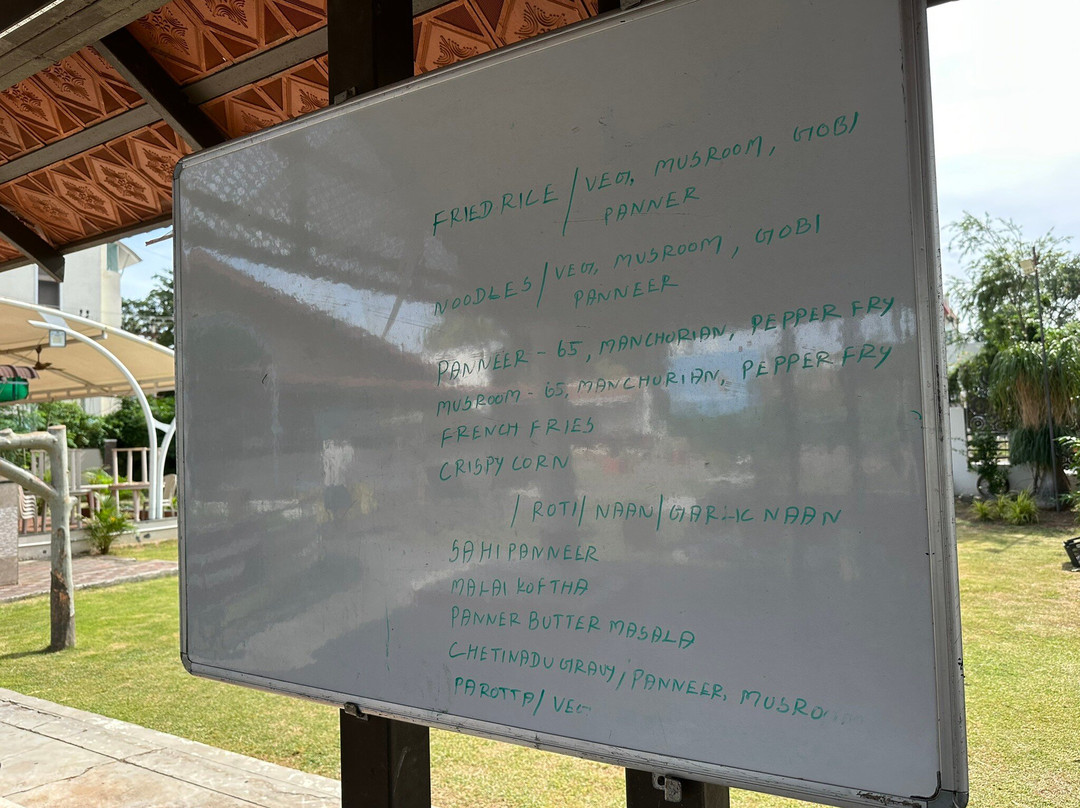 FRIED RICE / VEG, MUSROOM, GOBI
PANNER
NOODLES / VEG, MUSROOM, GOBI
PANNEER
PANNEER - 65, MANCHURIAN, PEPPER FRY
MUSROOM - 65, MANCHURIAN, PEPPER FRY
FRENCH FRIES
CRISPY CORN
/ ROTI / NAAN / GARLIC NAAN
SAHI PANNEER
MALAI KOFTHA
PANNER BUTTER MASALA
CHETINADU GRAVY / PANNEER, MUSROOM
PAROTTA / VEG